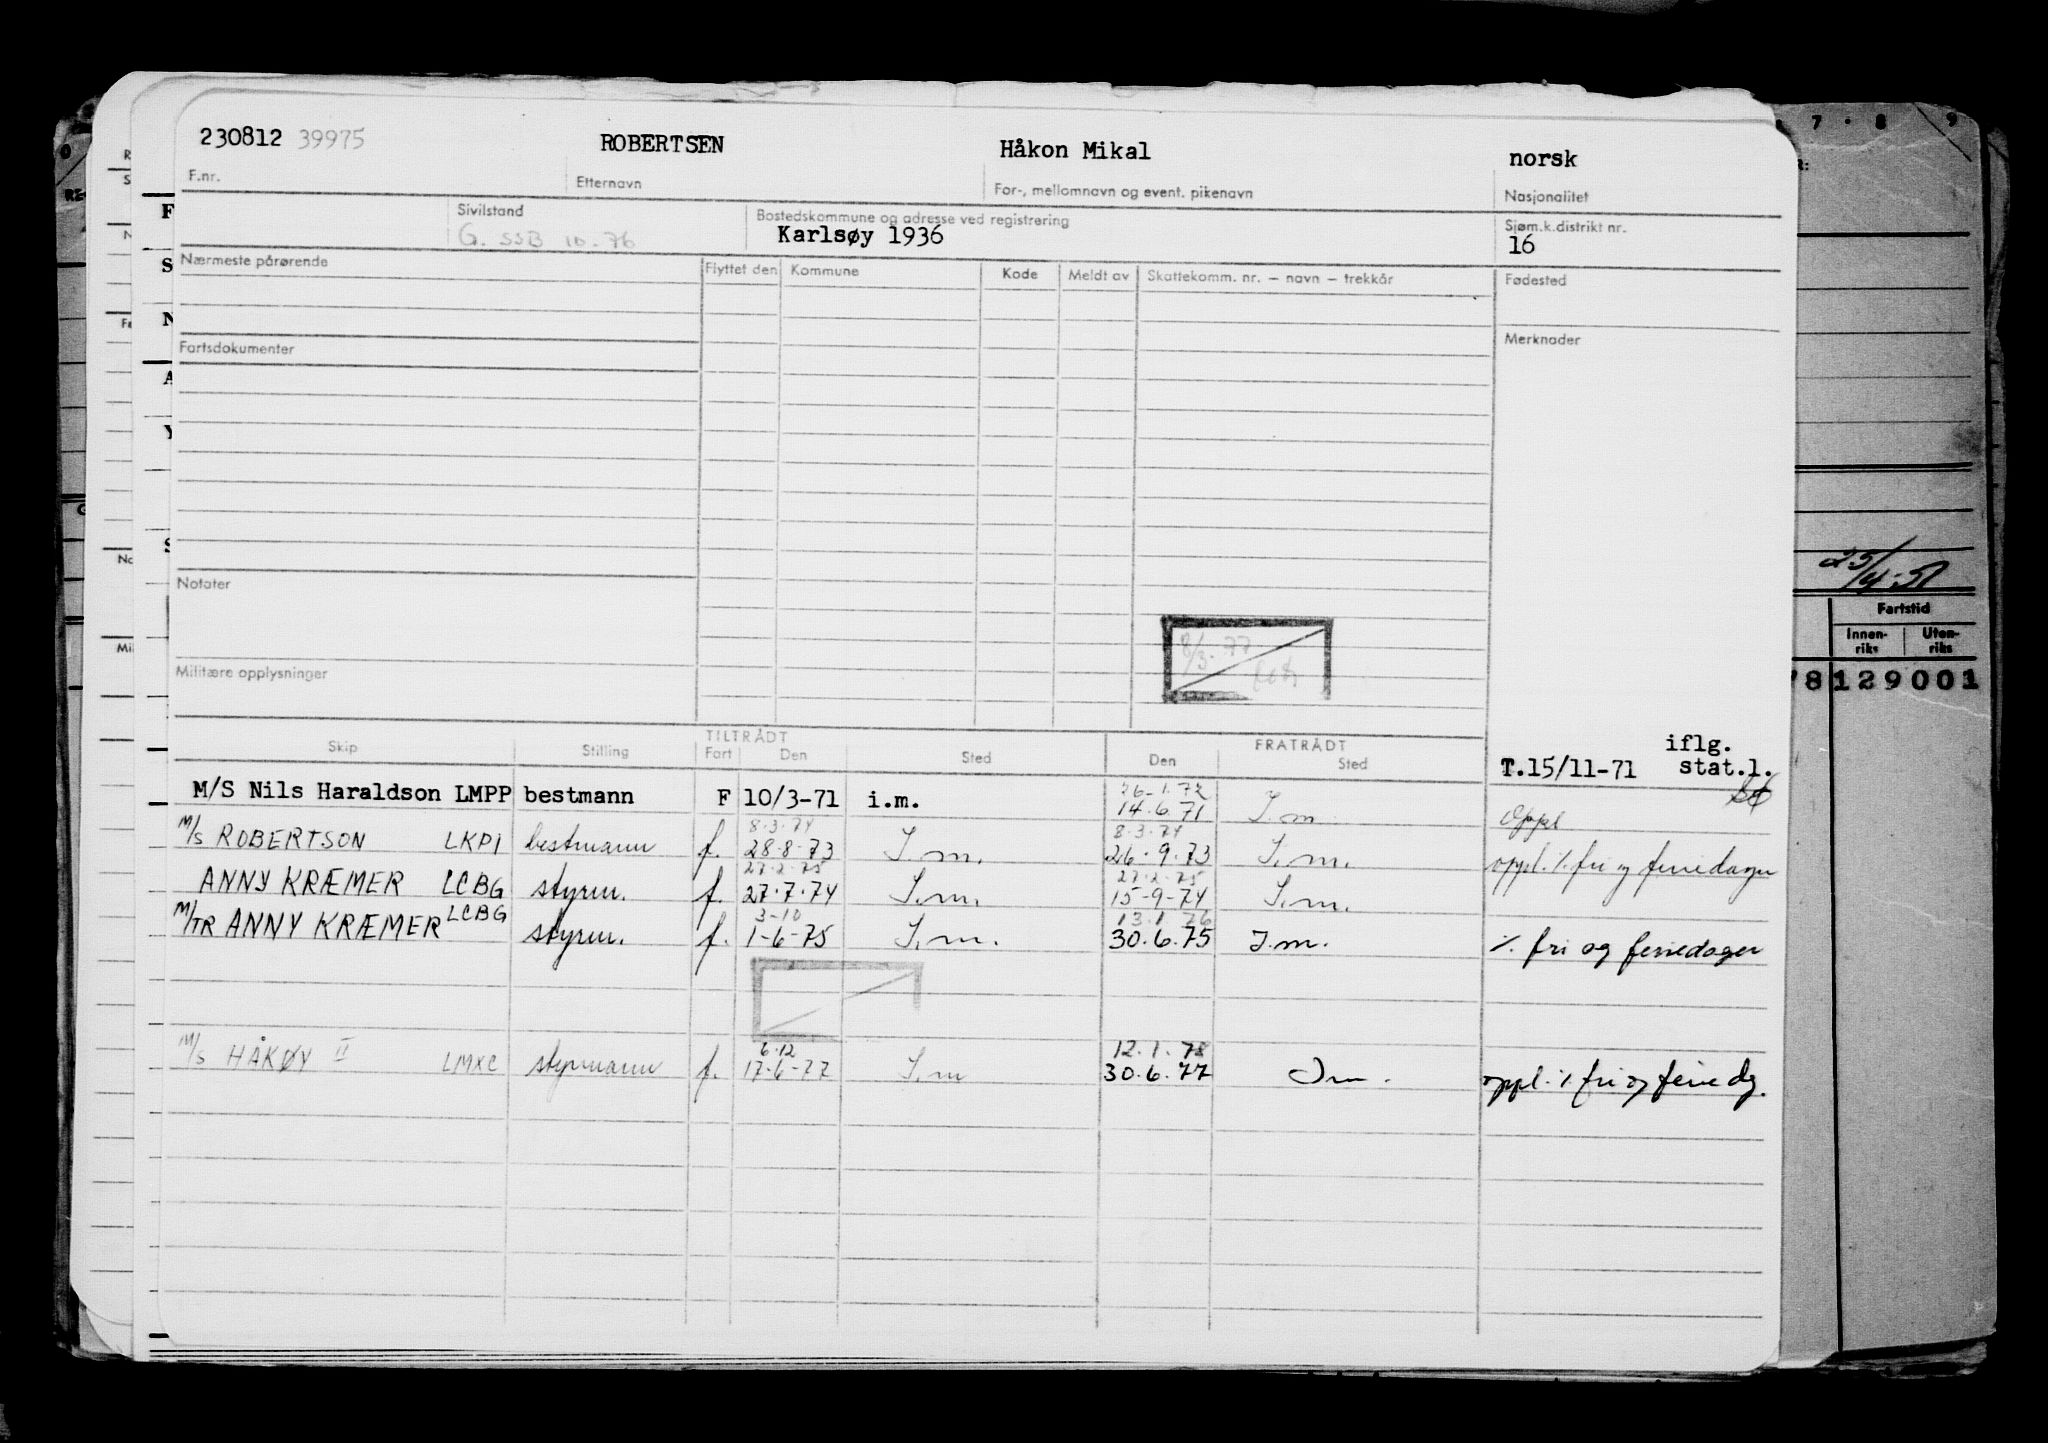 230812 39975 ROBERTSEN Håkon Mikal norsk
F.nr. Etternavn For-, mellomnavn og event. pikenavn Nasjonalitet
Sivilstand Bostedskommune og adresse ved registrering Sjøm.k.distrikt nr.
G. SSB 10-76 Karlsøy 1936 16
Nærmeste pårørende Flyttet den Kommune Kode Meldt av Skattekomm. nr. – navn – trekkår Fødested
Fartsdokumenter Merknader
Notater
8/3-77
Militære opplysninger
25/4-51
Fartstid
Innen-riks Uten-riks
78 129001
Skip Stilling TILTRÅDT FRATRÅDT
Fart Den Sted Den Sted
T.15/11-71 iflg. stat.l.
26-1.72
M/S Nils Haraldson LMPP bestmann F 10/3-71 i.m. 14.6.71 I.m Oppl
8.3.74 8.3.74
M/S ROBERTSON LKPI bestmann f. 28.8-73 I.m. 26.9.73 I.m. oppl. ٪ fri og feriedager
27.2.75 27.2.75
ANNY KRÆMER LCBG styrm. f. 27.7.74 I.m. 15-9-74 I.m.
3-10 13.1.76
M/TR ANNY KRÆMER LCBG styrm. f. 1-6-75 I.m. 30.6.75 I.m. ٪ fri og feriedager
6.12 12.1.78
M/S HÅKØY II LMXC styrmann f. 17-6-77 I.m 30.6.77 Im. oppl. ٪ fri og feriedg.